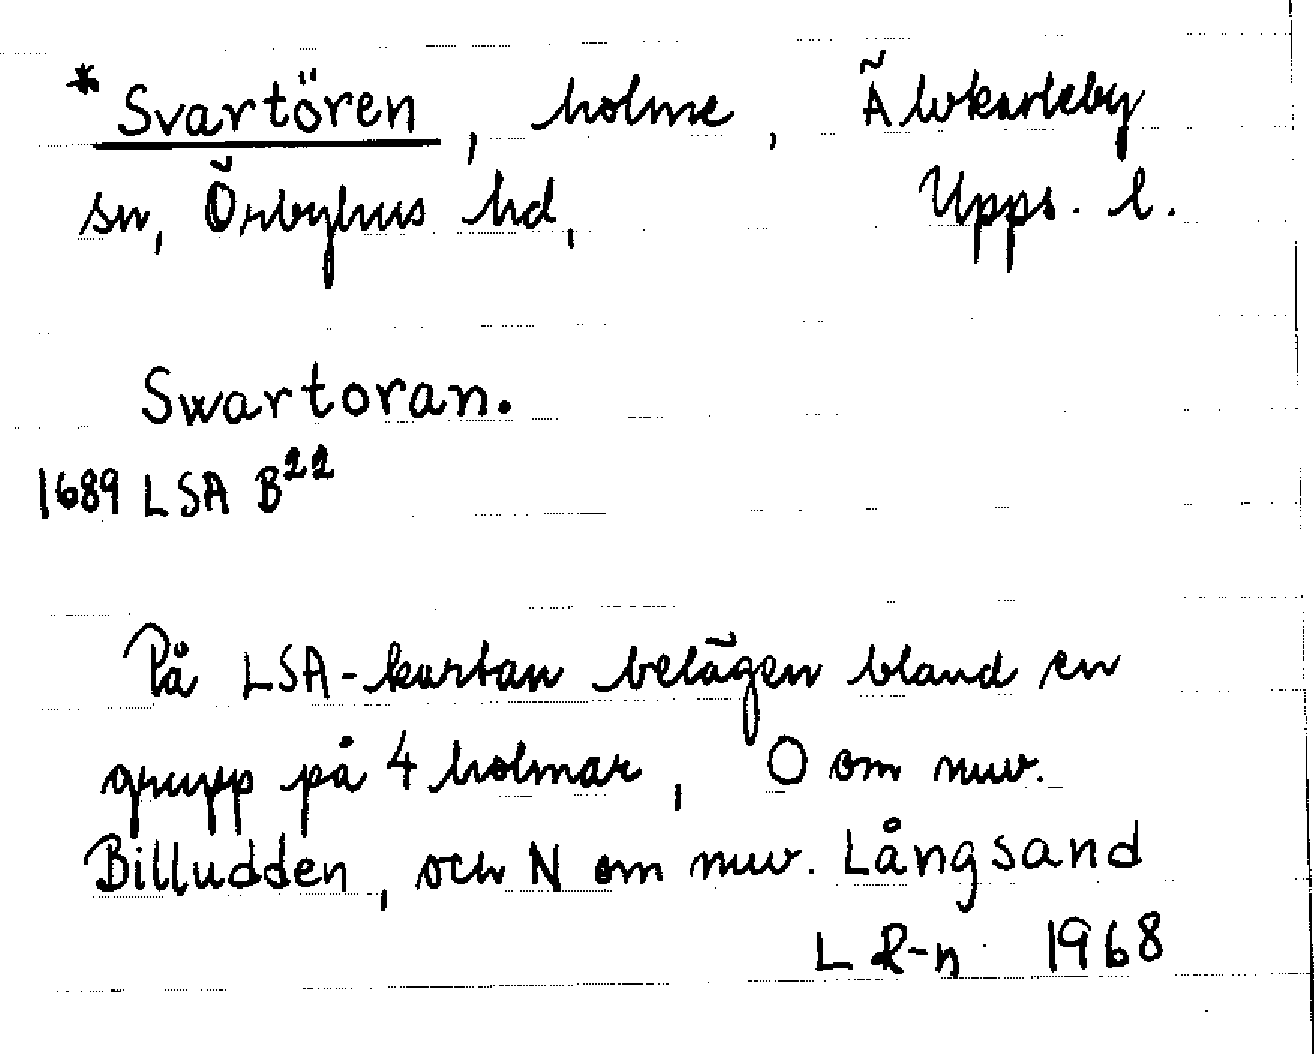 * Svartören, holme, Älvkarleby
sn, Örbyhus hd, Upps. l.
Swartoran.
1689 LSA B22
På LSA-kartan belägen bland en
grupp på 4 holmar, O om nuv.
Billudden, och N om nuv. Långsand
L R-n 1968